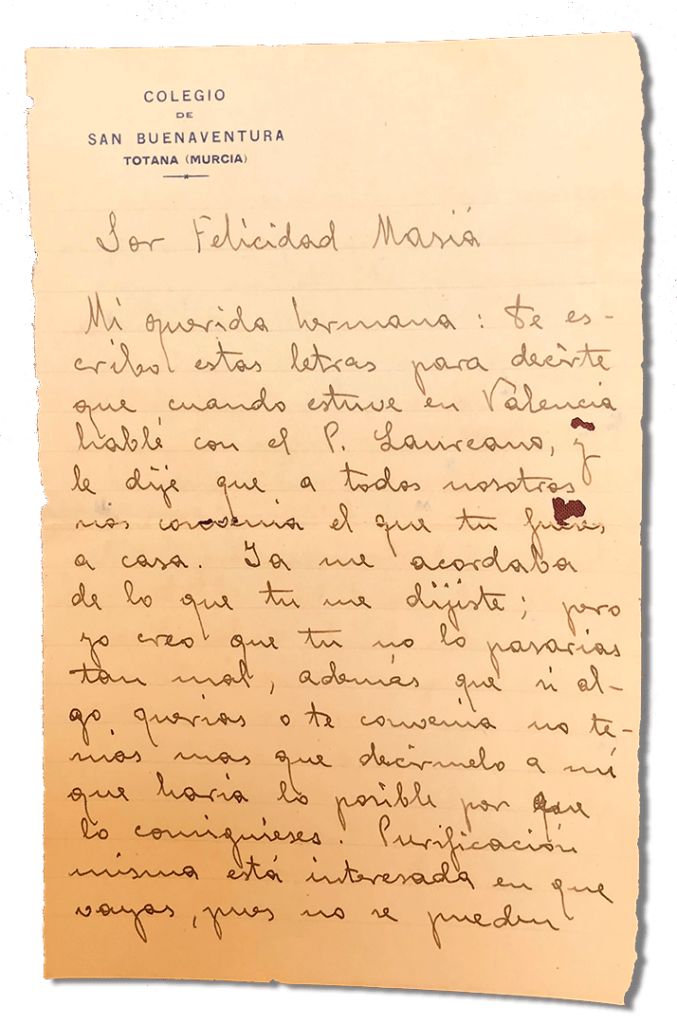 COLEGIO
DE
SAN BUENAVENTURA
TOTANA (MURCIA)
Sor Felicidad Masiá
Mi querida hermana: te es-
cribo estas letras para decirte
que cuando estuve en Valencia
hablé con el P. Laureano, y
le dije que a todos nosotros
nos convenia el que tu fueses
a casa. Ya me acordaba
de lo que tu me dijiste; pero
yo creo que tu no lo pasarias
tan mal, además que si al-
go querias o te convenia no te-
nias mas que decirmelo a mi
que haria lo posible por que
lo consiguieses. Purificación
misma está interesada en que
vayas, pues no se pueden